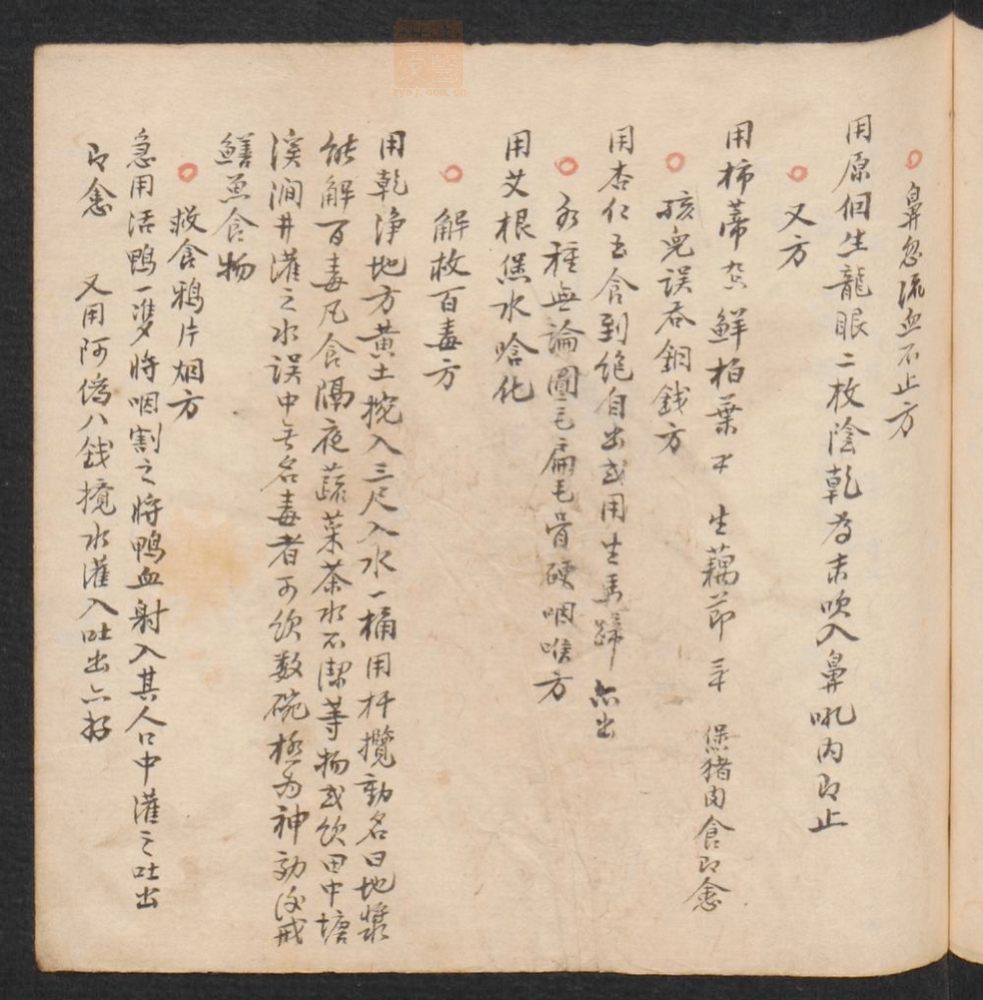 鼻忽流血不止方
用原個生龍眼二枚陰乾為末吹入鼻吼內即止
又方
用柿蒂 鮮柏葉 生藕節 煲猪肉食即愈
孩兒誤吞銅錢方
用杏仁五含到飽自出或用生馬蹄亦出
多種無論圓毛扁毛骨硬咽喉方
用艾根煲水唅化
解救百毒方
用乾净地方黄土挖入三尺入水一桶用杆攬動名曰地漿
能解百毒凡食隔夜蔬菜茶水不潔等物或飲田中塘
溪澗井灌之水誤中無名毒者可飲数碗極為神効後戒
鱔魚食物
救食鴉片烟方
急用活鴨一隻將咽割之將鴨血射入其人口中灌之吐出
即愈 又用阿偽八錢攪水灌入吐出亦好